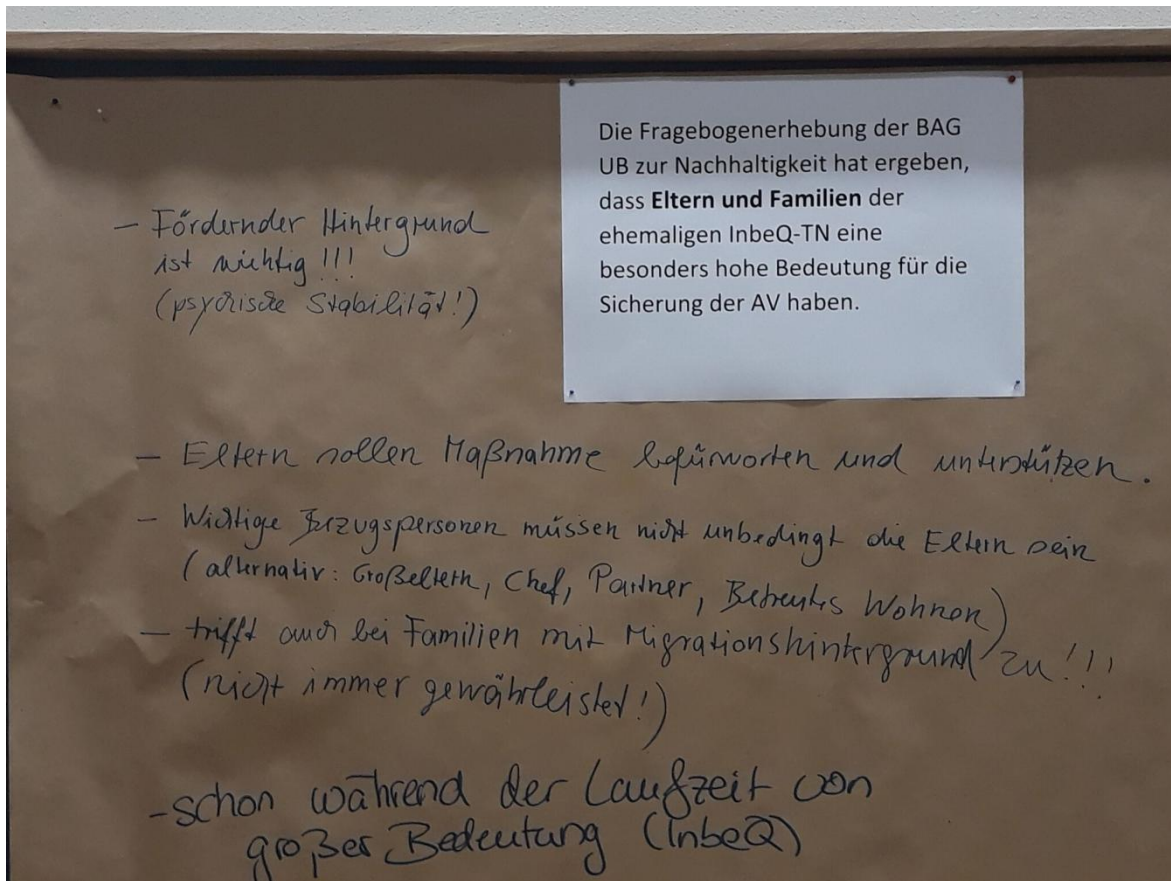 Die Fragebogenerhebung der BAG
UB zur Nachhaltigkeit hat ergeben,
dass Eltern und Familien der
ehemaligen InbeQ-TN eine
besonders hohe Bedeutung für die
Sicherung der AV haben.
– Fördernder Hintergrund
ist wichtig!!!
(psychische Stabilität!)
– Eltern sollen Maßnahme befürworten und unterstützen.
– Wichtige Bezugspersonen müssen nicht unbedingt die Eltern sein
(alternativ: Großeltern, Chef, Partner, Betreutes Wohnen)
– trifft auch bei Familien mit Migrationshintergrund zu!!!
(nicht immer gewährleistet!)
-schon während der Laufzeit von
großer Bedeutung (InbeQ)